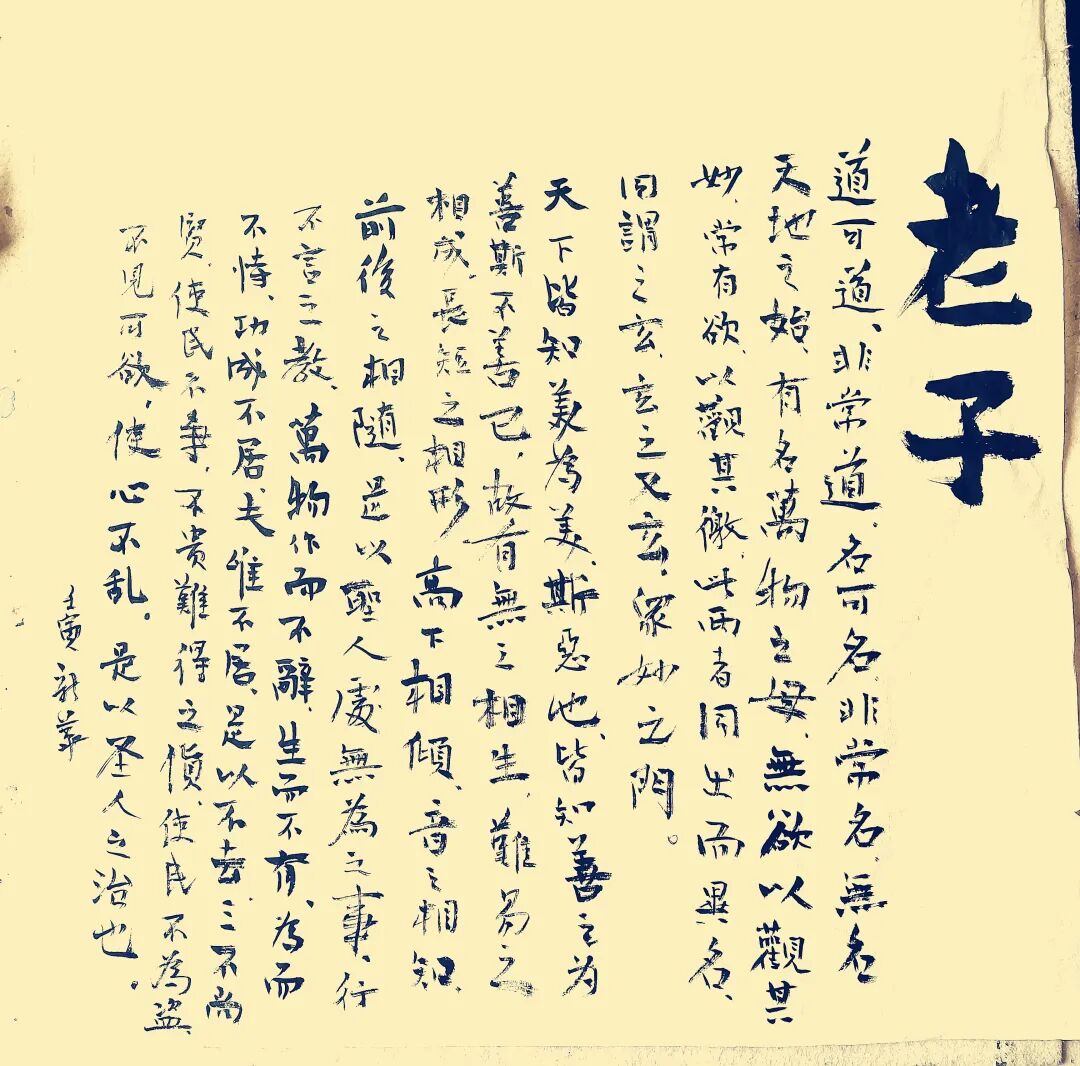 老子
道可道、非常道、名可名、非常名、無名
天地之始、有名萬物之母、無欲以觀其
妙、常有欲、以觀其徼、此两者同出而異名、
同謂之玄、玄之又玄、眾妙之門。
天下皆知美為美、斯惡也、皆知善之为
善斯不善已、故有無之相生、難易之
相成、長短之相形 高下相傾、音之相知、
前後之相隨、是以聖人處無為之事、行
不言之教、萬物作而不辭、生而不有、為而
不恃、功成不居夫唯不居、是以不去、三不尚
賢、使民不爭、不貴難得之貨、使民不為盜、
不見可欲、使心不乱。是以圣人之治也。
壬寅